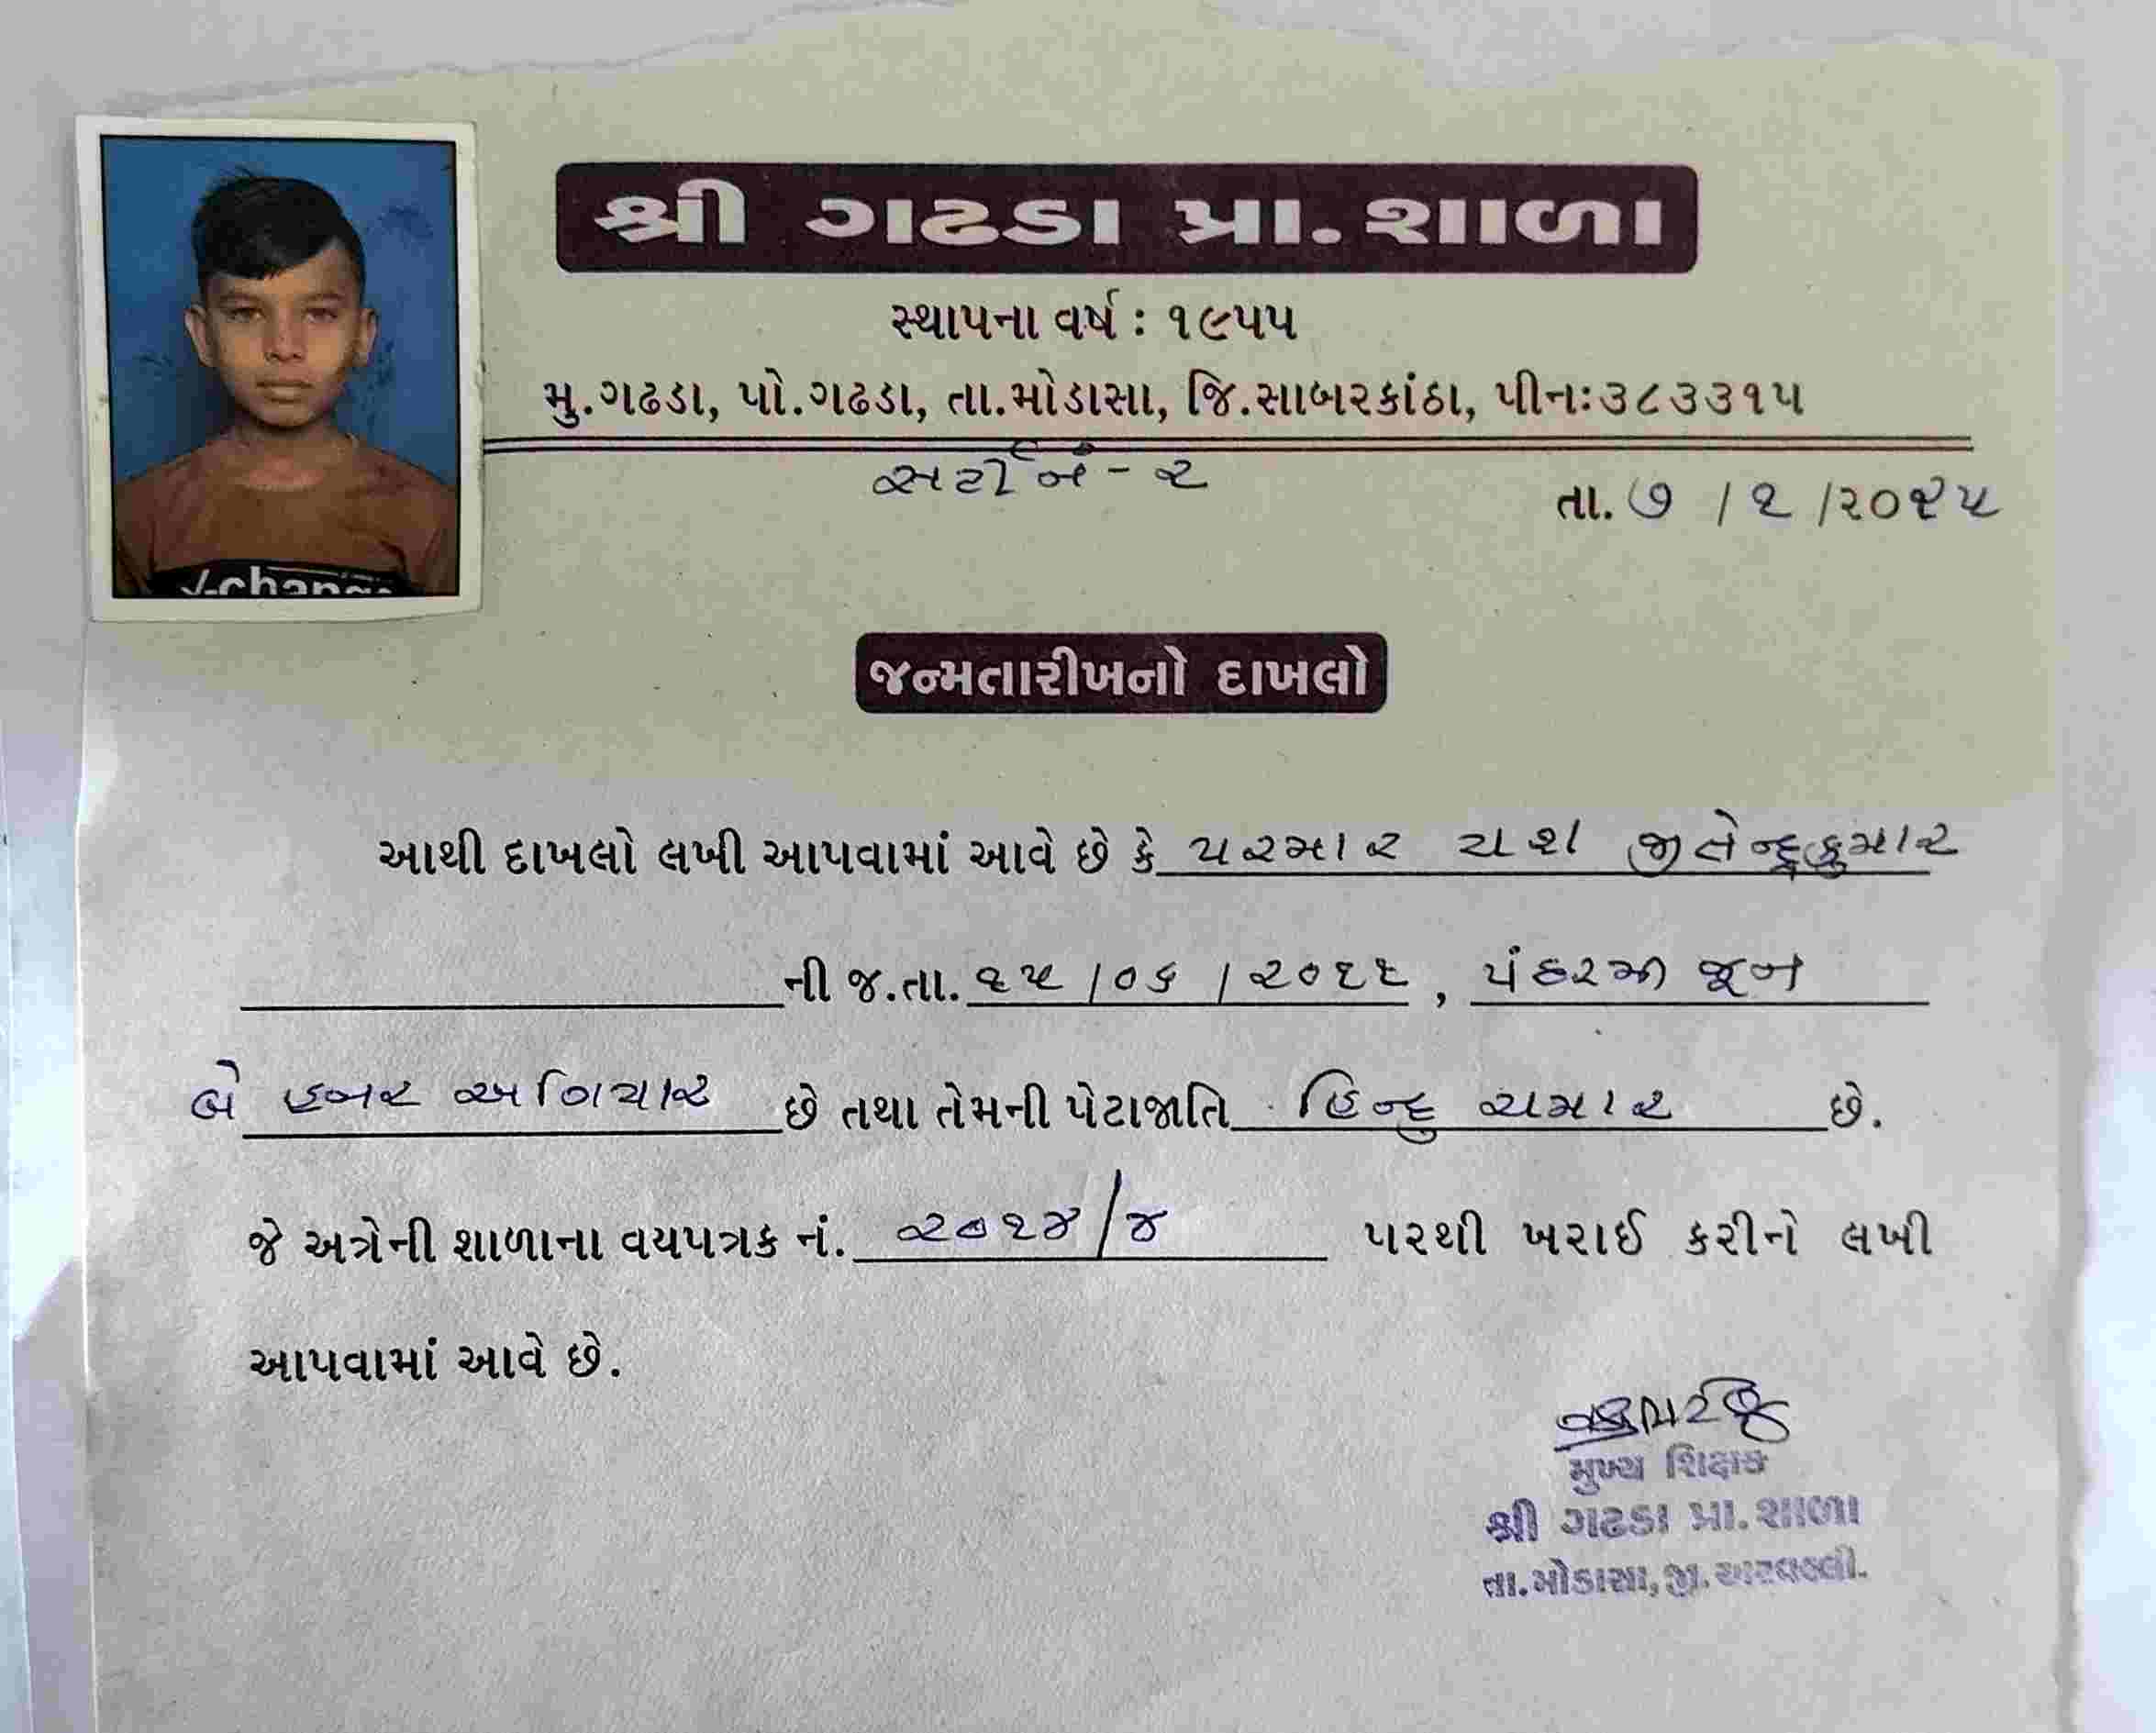 શ્રી ગઢડા પ્રા.શાળા
સ્થાપના વર્ષ : ૧૯૫૫
મુ.ગઢડા, પો.ગઢડા, તા.મોડાસા, જિ.સાબરકાંઠા, પીનઃ૩૮૩૩૧૫
સર્ટી નં - ૨
તા. ૭ / ૧ /૨૦૨૫
જન્મતારીખનો દાખલો
આથી દાખલો લખી આપવામાં આવે છે કે પરમાર યશ જીતેન્દ્રકુમાર
ની જ.તા. ૧૫ /૦૬ /૨૦૧૧ , પંદરમી જૂન
બે હજાર અગિયાર છે તથા તેમની પેટાજાતિ હિન્દુ ચમાર છે.
જે અત્રેની શાળાના વયપત્રક નં. ૨૦૧૪/૪ પરથી ખરાઈ કરીને લખી
આપવામાં આવે છે.
મુખ્ય શિક્ષક
શ્રી ગઢડા પ્રા.શાળા
તા.મોડાસા,જી.અરવલ્લી.